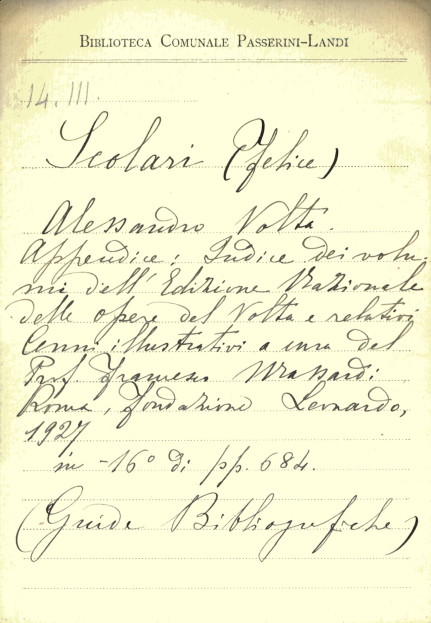 BIBLIOTECA COMUNALE PASSERINI-LANDI
14.III.
Scolari (Felice)
Alessandro Volta.
Appendice: Indice dei volu-
mi dell'Edizione Nazionale
delle opere del Volta e relativi
Cenni illustrativi a cura del
Prof. Francesco Massardi:
Roma, Fondazione Leonardo,
1927
in-16° di pp. 684.
(Guide Bibliografiche)